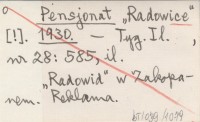 Pensjonat „Radowice"
[!]. 1930. — Tyg. Il.,
nr 28: 585, il.
„Radowid" w Zakopa-
nem. Reklama.